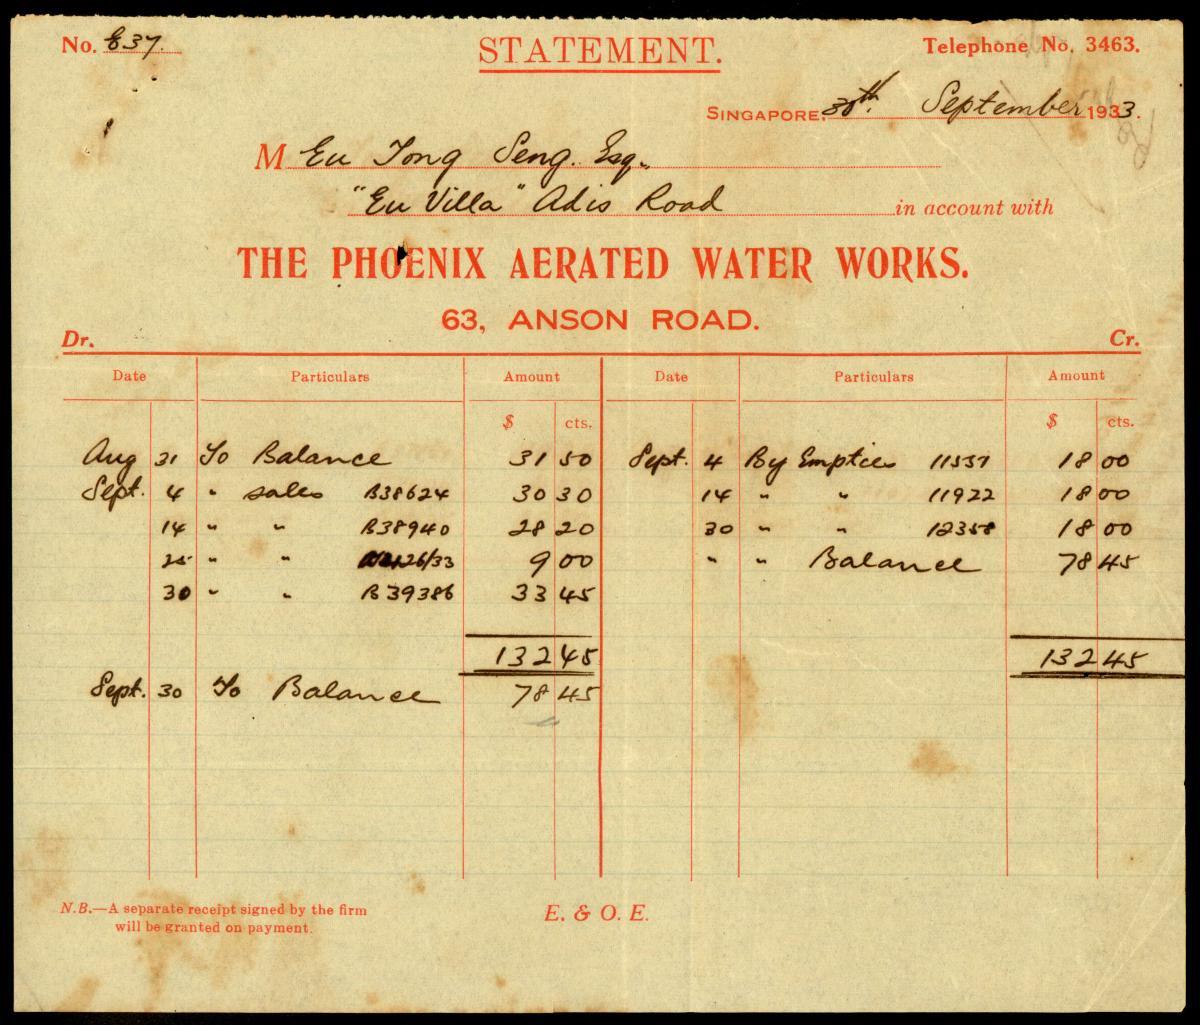 No. E37. STATEMENT. Telephone No. 3463.
SINGAPORE, 30th. September 1933.
M Eu Tong Seng. Esq.
"Eu Villa" Adis Road in account with
THE PHOENIX AERATED WATER WORKS.
63, ANSON ROAD.
Dr. Cr.
Date Particulars Amount Date Particulars Amount
$ cts. $ cts.
Aug 31 To Balance 31 50 Sept. 4 By Empties 11537 18 00
Sept. 4 " sales B38624 30 30 14 " " 11922 18 00
14 " " B38940 28 20 30 " " 12358 18 00
25 " " 9 00 " " Balance 78 45
30 " " B39386 33 45
132 45 132 45
Sept. 30 To Balance 78 45
N.B.—A separate receipt signed by the firm
will be granted on payment.
E. & O. E.